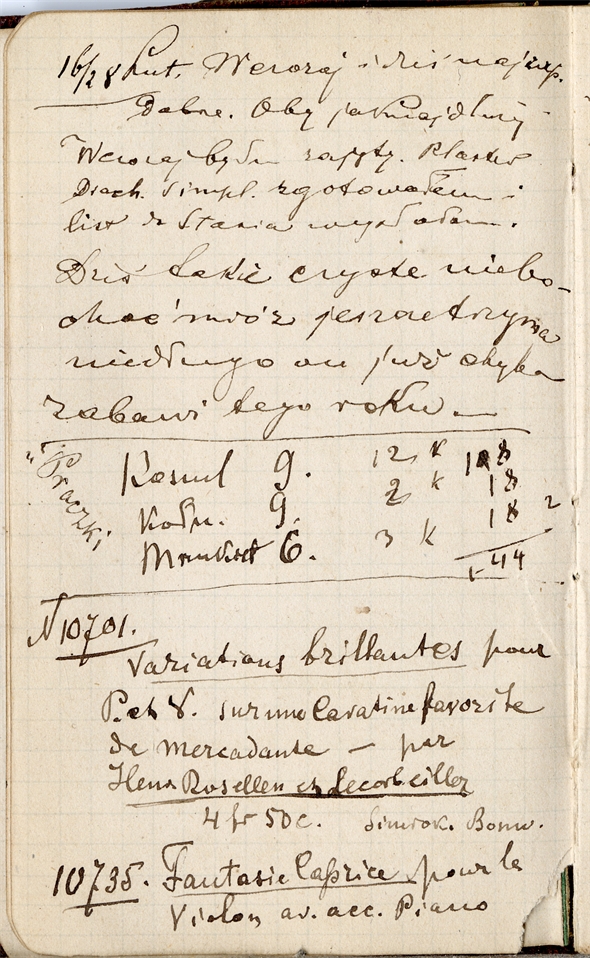 16/28 Lut. Wczoraj i dziś najzup.
Dobre. Oby jaknajdłużej
Wczoraj byłem zajęty. Plastr
Diach. Simpl. zgotowałem i
list do Stasia wysłałem.
Dziś takie czyste niebo –
choć mróz jeszcze trzyma
niedługo on już chyba
zabawi tego roku —
"Praczki"
Koszul 9. 12 k 108
Kołn. 9. 2 k 18
Mankiet 6. 3 k 18
144
N 10701.
Variations brillantes pour
P. et V. sur une Cavatine favorite
de Mercadante — par
Henri Rosellen et Lecorbeiller
4 fr 50 c. Simrok. Bonn.
10735. Fantasie Caprice pour le
Violon av. acc. Piano